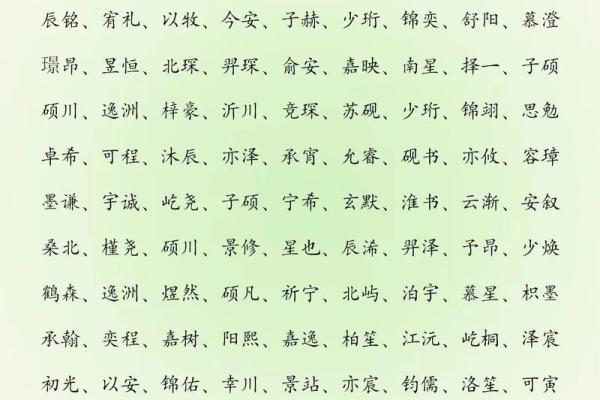 辰铭、宥礼、以牧、今安、子赫、少珩、锦奕、舒阳、慕澄
璟昂、昱恒、北琛、羿琛、俞安、嘉映、南星、择一、子硕
硕川、逸洲、梓豪、沂川、竞琛、苏砚、少珩、锦翊、思勉
卓希、可程、沐辰、亦泽、承宵、允睿、砚书、亦攸、容璋
墨谦、宇诚、屹尧、子硕、宁希、玄默、淮书、云渐、安叙
桑北、槿尧、硕川、景修、星也、辰浠、羿泽、予昂、少焕
鹤森、逸洲、煜然、硕凡、祈宁、北屿、泊宇、慕星、枳墨
承翰、奕程、嘉树、阳熙、嘉逸、柏笙、江沅、屹桐、泽宸
初光、以安、锦佑、幸川、景站、亦宸、钧儒、洛笙、可寅